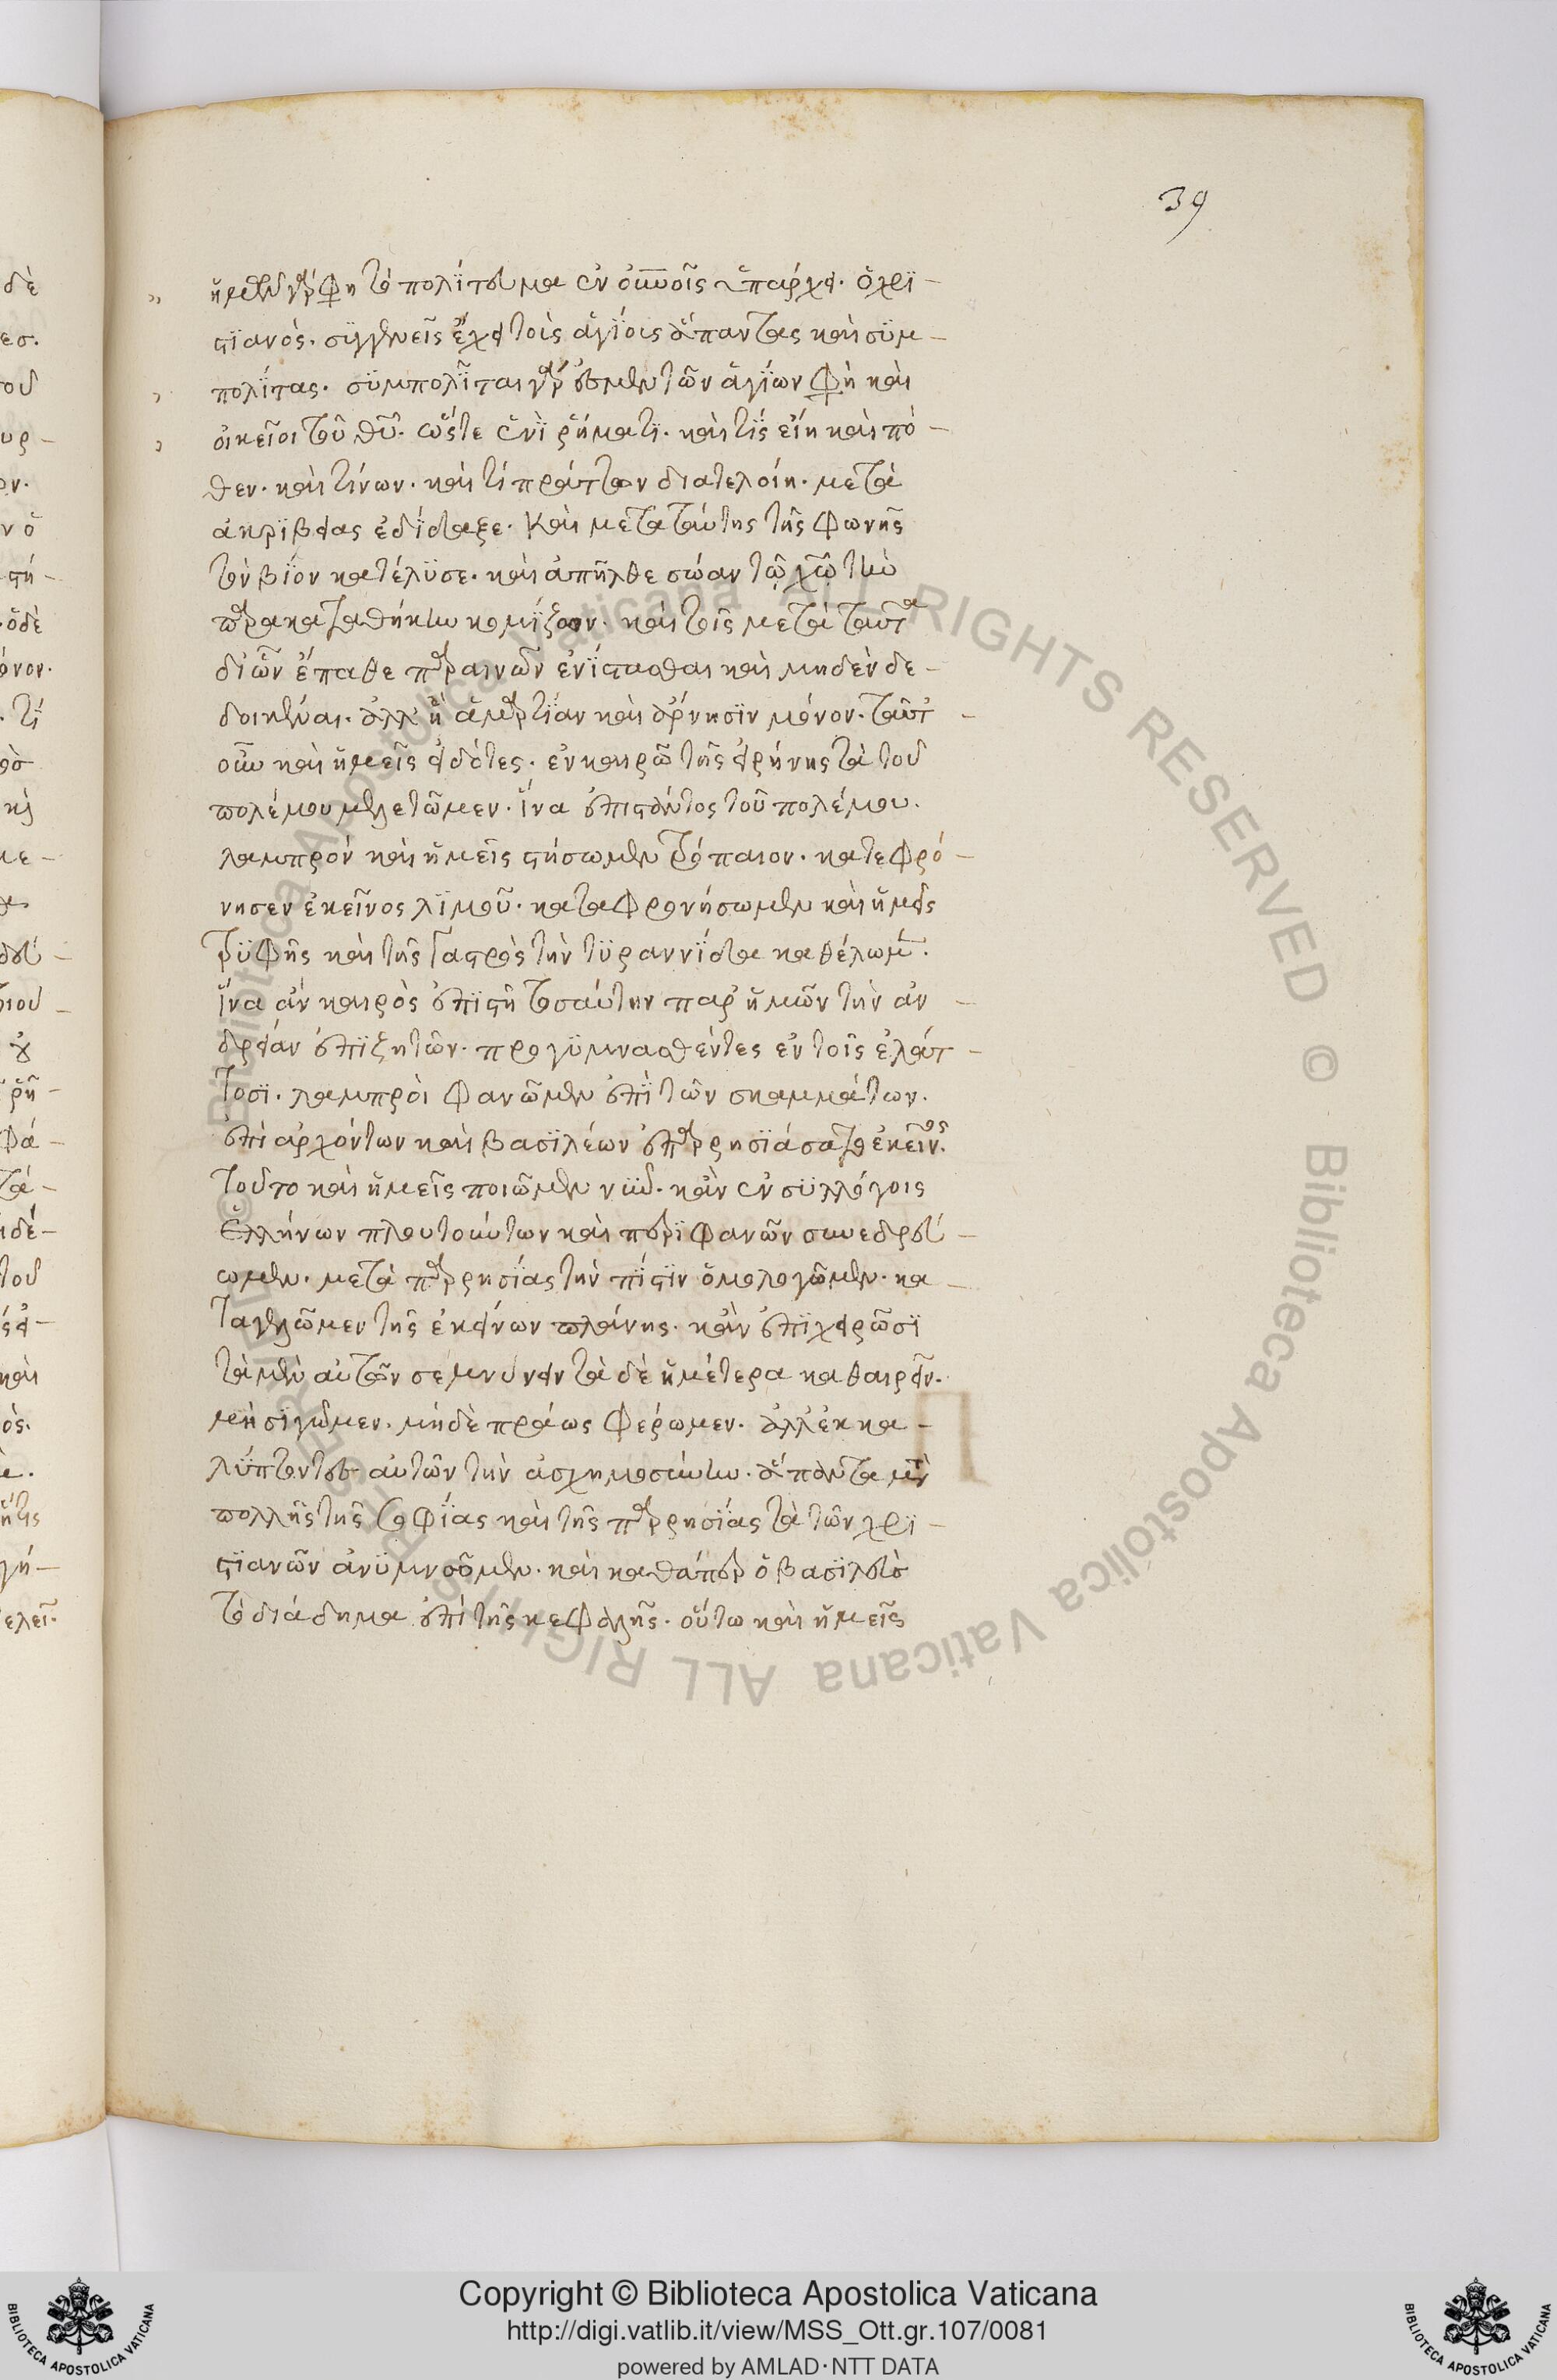 39
ἡμῶν γάρ φη τὸ πολίτευμα ἐν οὐνοῖς ὑπάρχει. ὁ χρι-
στιανὸς. συγγενεῖς ἔχει τοὺς ἁγίους ἅπαντας καὶ συμ-
πολίτας. συμπολῖται γάρ ἐσμεν τῶν ἁγίων φη καὶ
οἰκεῖοι τοῦ θυ. ὥστε ἑνὶ ῥήματι. καὶ τίς εἴη καὶ πό-
θεν. καὶ τίνων. καὶ τί πράττων διατελοίη. μετὰ
ἀκριβείας ἐδίδαξε. καὶ μετὰ ταύτης τῆς φωνῆς
τὸν βίον κατέλυσε. καὶ ἀπῆλθε σώαν τῷ χῷ τὴν
παρακαταθήκην κομίζων. καὶ τοῖς μετὰ ταῦτα
δι' ὧν ἔπαθε παραινῶν ἐνίστασθαι καὶ μηδὲν δε-
δοικέναι. ἀλλ' ἢ ἁμαρτίαν καὶ ἄρνησιν μόνον. ταῦτ'
οὖν καὶ ἡμεῖς εἰδότες. ἐν καιρῶ τῆς εἰρήνης τὰ τοῦ
πολέμου μελετῶμεν. ἵνα ἐπιστάντος τοῦ πολέμου.
λαμπρὸν καὶ ἡμεῖς στήσωμεν τρόπαιον. κατεφρό-
νησεν ἐκεῖνος λιμοῦ. καταφρονήσωμεν καὶ ἡμεῖς
τρυφῆς καὶ τῆς γαστρὸς τὴν τυραννίδα καθέλωμεν.
ἵνα ἂν καιρὸς ἐπιστῆ τοσαύτην παρ' ἡμῶν τὴν ἀν-
δρείαν ἐπιζητῶν. προγυμνασθέντες ἐν τοῖς ἐλάτ-
τοσι. λαμπροὶ φανῶμεν ἐπὶ τῶν σκαμμάτων.
ἐπὶ ἀρχόντων καὶ βασιλέων ἐπαρρησιάσατο ἐκεῖνος.
τοῦτο καὶ ἡμεῖς ποιῶμεν νῦν. κἂν ἐν συλλόγοις
ἑλλήνων πλουτούντων καὶ περιφανῶν συνεδρεύ-
ωμεν. μετὰ παρρησίας τὴν πίστιν ὁμολογῶμεν. κα-
ταγελῶμεν τῆς ἐκείνων πλάνης. κἂν ἐπιχειρῶσι
τὰ μὲν αὐτῶν σεμνύνειν τὰ δὲ ἡμέτερα καθαιρεῖν.
μὴ σιγῶμεν. μηδὲ πράως φέρωμεν. ἀλλ' ἐκκα-
λύπτοντες αὐτῶν τὴν ἀσχημοσύνην. ἅπαντα μετὰ
πολλῆς τῆς σοφίας καὶ τῆς παρρησίας τὰ τῶν χρι-
στιανῶν ἀνυμνῶμεν. καὶ καθάπερ ὁ βασιλεὺς
τὸ διάδημα ἐπὶ τῆς κεφαλῆς. οὕτω καὶ ἡμεῖς
© Biblioteca Apostolica Vaticana ALL RIGHTS RESERVED
Copyright © Biblioteca Apostolica Vaticana
http://digi.vatlib.it/view/MSS_Ott.gr.107/0081
powered by AMLAD·NTT DATA
BIBLIOTECA APOSTOLICA VATICANA
BIBLIOTECA APOSTOLICA VATICANA